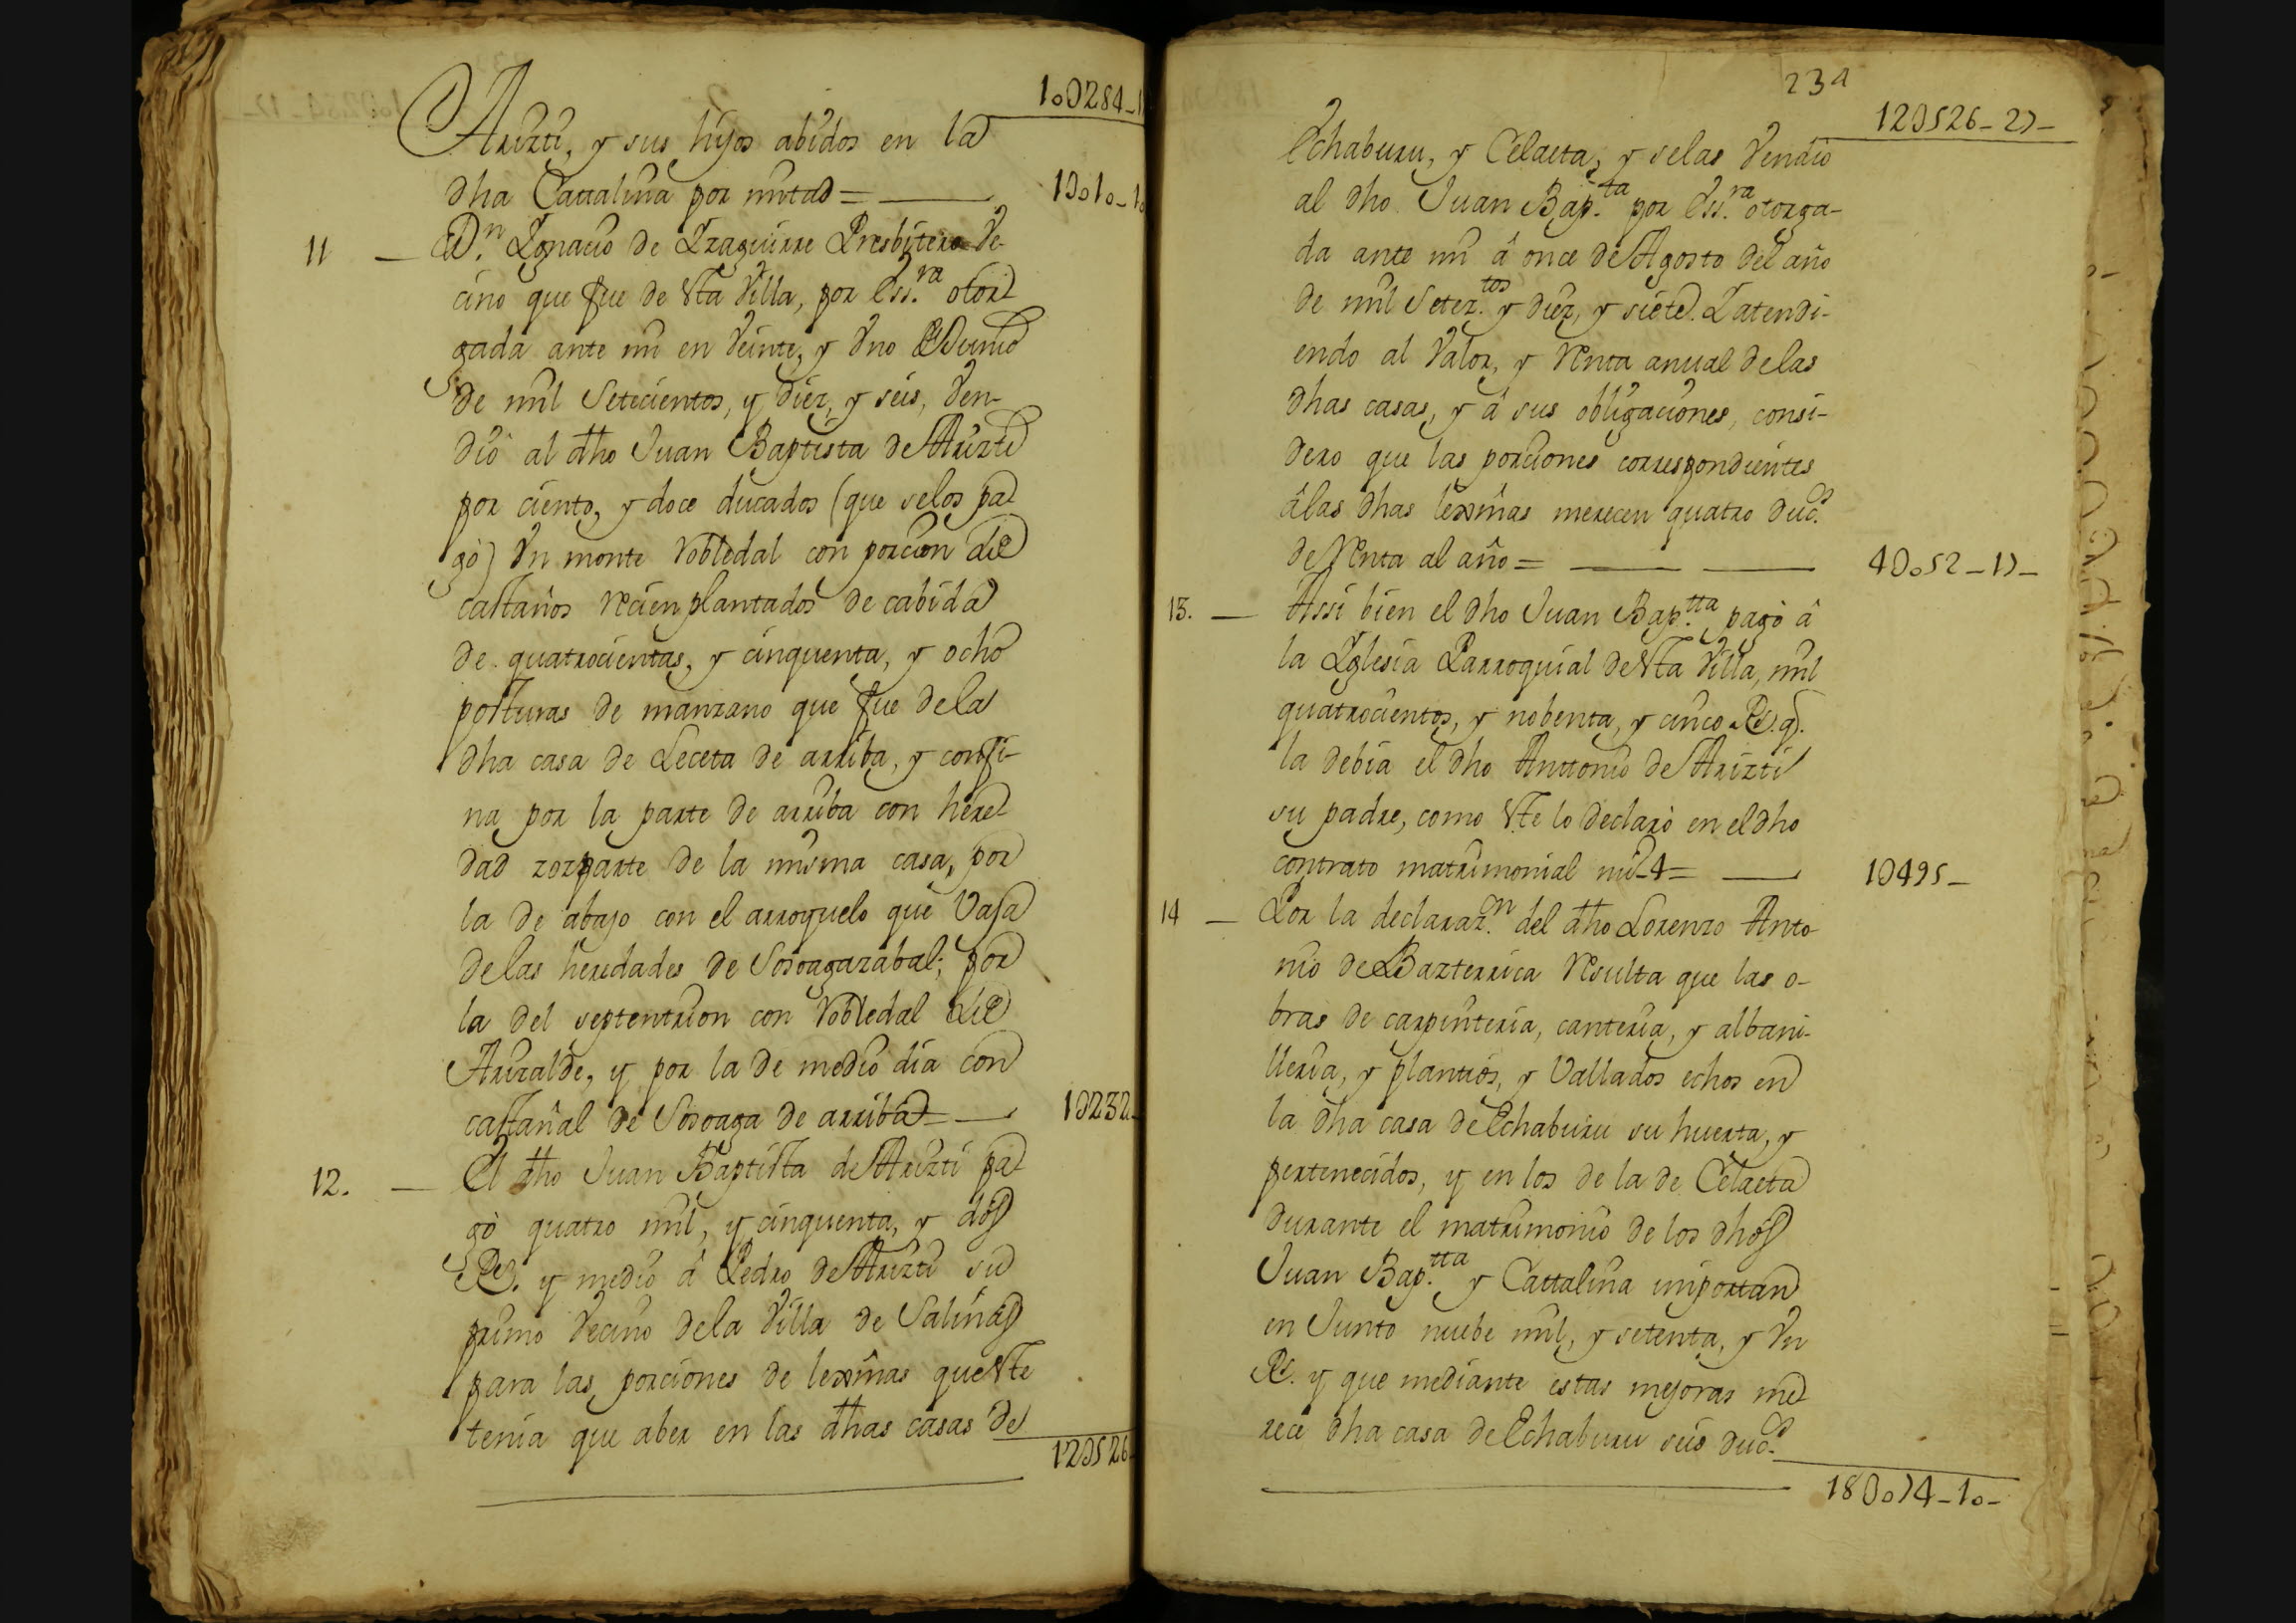 10U284-1
Arizti, y sus hijos abidos en la
dha Cattalina por mitad = 1U010-1
11 — Dn. Ignacio de Izaguirre Presbitero ve-
cino que fue de esta villa, por Essra. otor-
gada ante mi en veinte, y vno de Junio
de mil setecientos, y diez, y seis, ven-
dió al dho Juan Baptista de Arizti
por ciento, y doce ducados (que selos pa-
gò) vn monte robledal con porcion de
castaños recien plantados de cabida
de quatrocientas, y cinquenta, y ocho
posturas de manzano que fue dela
dha casa de Leceta de arriba, y confi-
na por la parte de arriba con here-
dad zozparte de la misma casa, por
la de abajo con el arroyuelo que vaja
delas heredades de Sosoagazabal; por
la del septentrion con robledal de
Arizalde, y por la de medio dia con
castañal de Sosoaga de arriba = 1U232
12. — El dho Juan Baptista de Arizti pa-
gò quatro mil, y cinquenta, y dos
Rs. y medio â Pedro de Arizti su
primo vecino dela villa de Salinas
para las porciones de lexmas que este
tenia que aber en las dhas casas de
12U526
234
12U526-27-
Echaburu, y Celaeta, y selas vendio
al dho Juan Bapta. por Essra. otorga-
da ante mi â once de Agosto del año
de mil setez.tos y diez, y siete. I atendi-
endo al valor, y renta anual delas
dhas casas, y â sus obligaciones, consi-
dero que las porciones correspondientes
âlas dhas lexmas merecen quatro ducs.
de renta al año = 4U052-17-
13. — Assi bien el dho Juan Baptta. pagò â
la Iglesia Parroquial de esta villa, mil
quatrocientos, y nobenta, y cinco Rs. q.
la debia el dho Anttonio de Arizti
su padre, como este lo declarò en el dho
contrato matrimonial nu-4 = 1U495-
14 — Por la declarazon. del dho Lorenzo Anto-
nio de Bazterrica resulta que las o-
bras de carpinteria, canteria, y albani-
lleria, y plantios, y vallados echos en
la dha casa de Echaburu su huerta, y
pertenecidos, y en los de la de Celaeta
durante el matrimonio de los dhos
Juan Baptta. y Cattalina importan
en junto nuebe mil, y setenta, y vn
Rs. y que mediante estas mejoras me-
rece dha casa de Echaburu seis ducs.
18U074-10-